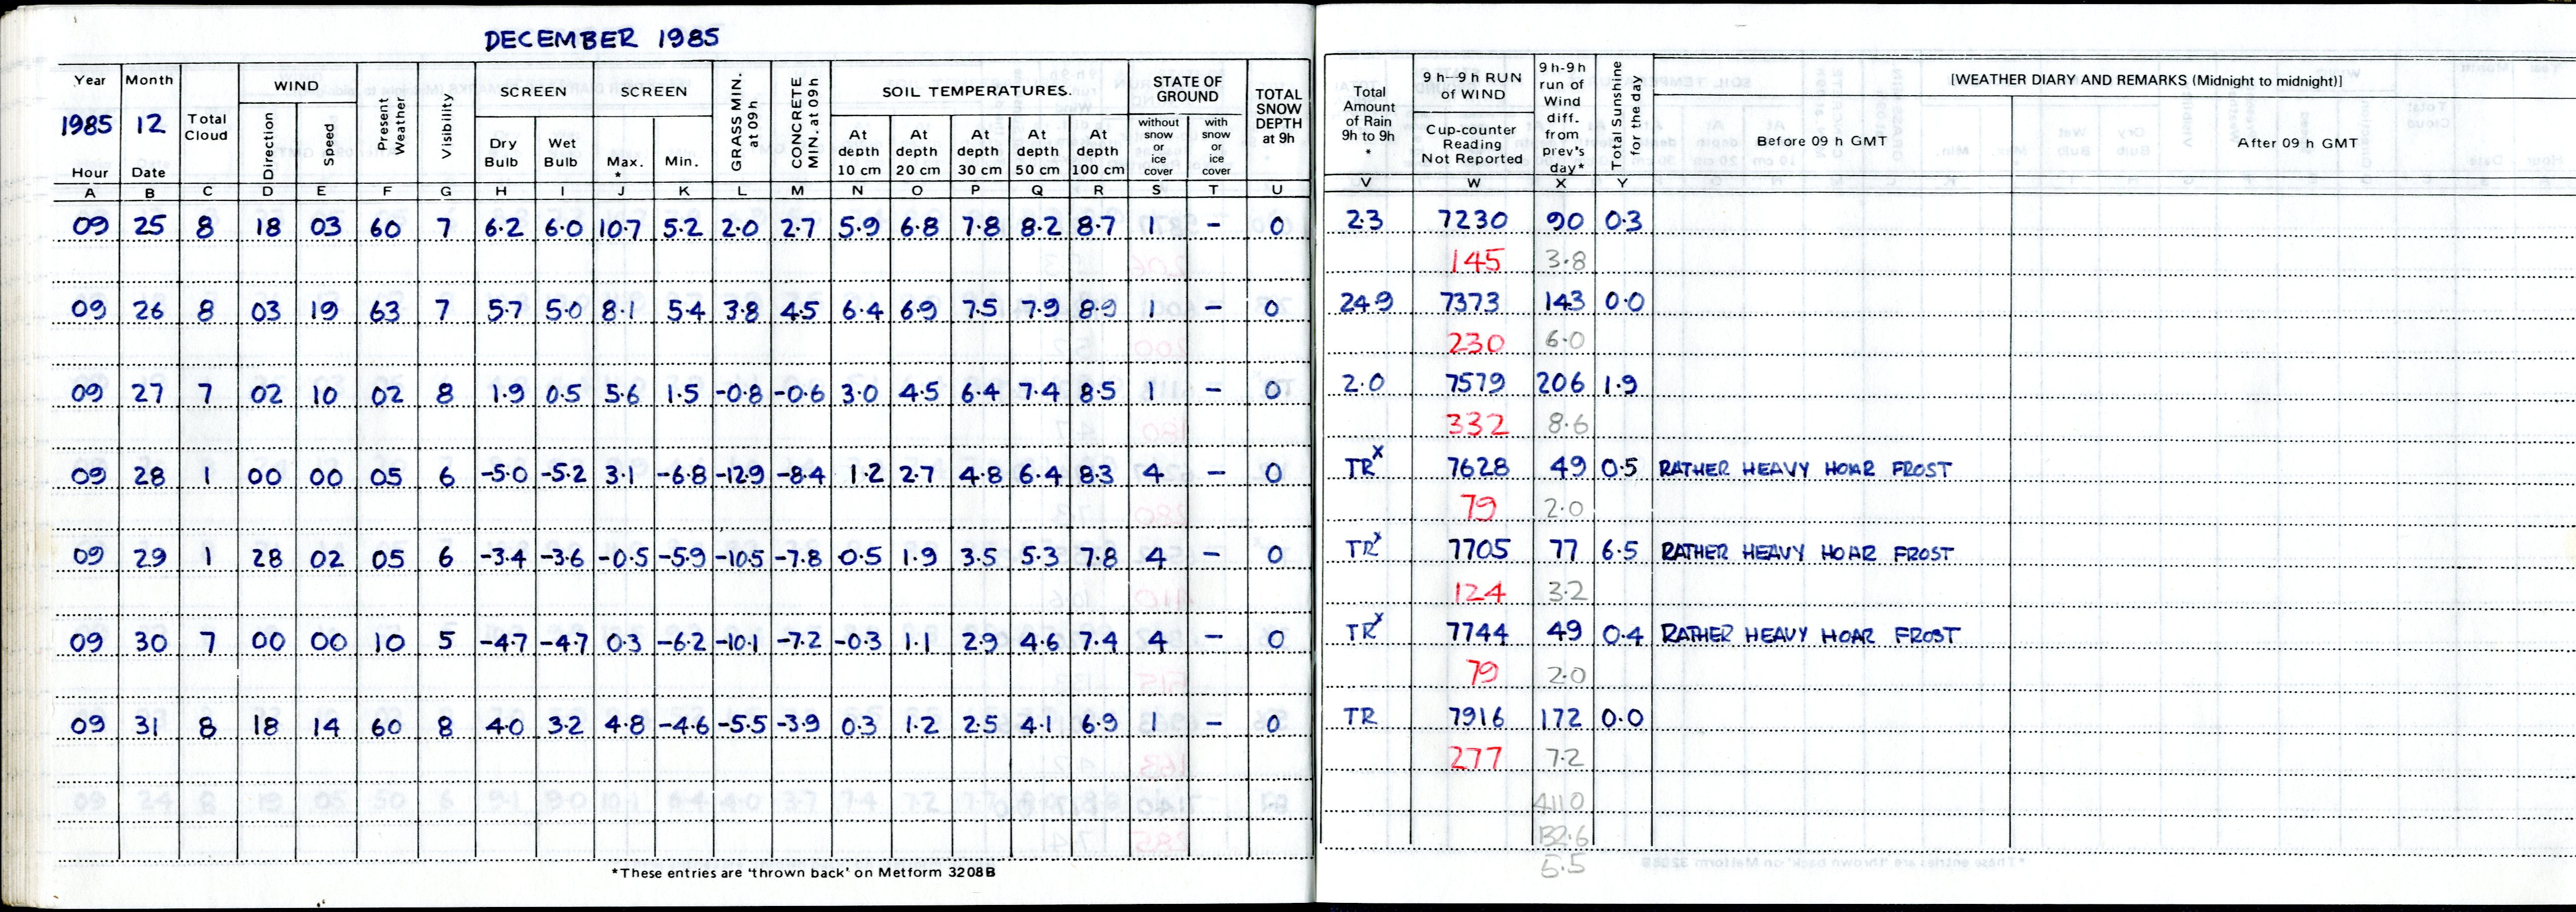 DECEMBER 1985
Year Month Total Cloud WIND Present Weather Visibility SCREEN SCREEN GRASS MIN. at 09h CONCRETE MIN. at 09h SOIL TEMPERATURES. STATE OF GROUND TOTAL SNOW DEPTH at 9h Total Amount of Rain 9h to 9h * 9 h-9 h RUN of WIND 9 h-9 h run of Wind diff. from prev's day* Total Sunshine for the day [WEATHER DIARY AND REMARKS (Midnight to midnight)]
1985 12
Hour Date Direction Speed Dry Bulb Wet Bulb Max. * Min. At depth 10 cm At depth 20 cm At depth 30 cm At depth 50 cm At depth 100 cm without snow or ice cover with snow or ice cover Cup-counter Reading Not Reported Before 09 h GMT After 09 h GMT
A B C D E F G H I J K L M N O P Q R S T U V W X Y
09 25 8 18 03 60 7 6.2 6.0 10.7 5.2 2.0 2.7 5.9 6.8 7.8 8.2 8.7 1 - 0 2.3 7230 90 0.3
145 3.8
09 26 8 03 19 63 7 5.7 5.0 8.1 5.4 3.8 4.5 6.4 6.9 7.5 7.9 8.9 1 - 0 24.9 7373 143 0.0
230 6.0
09 27 7 02 10 02 8 1.9 0.5 5.6 1.5 -0.8 -0.6 3.0 4.5 6.4 7.4 8.5 1 - 0 2.0 7579 206 1.9
332 8.6
09 28 1 00 00 05 6 -5.0 -5.2 3.1 -6.8 -12.9 -8.4 1.2 2.7 4.8 6.4 8.3 4 - 0 TR x 7628 49 0.5 RATHER HEAVY HOAR FROST
79 2.0
09 29 1 28 02 05 6 -3.4 -3.6 -0.5 -5.9 -10.5 -7.8 0.5 1.9 3.5 5.3 7.8 4 - 0 TR x 7705 77 6.5 RATHER HEAVY HOAR FROST
124 3.2
09 30 7 00 00 10 5 -4.7 -4.7 0.3 -6.2 -10.1 -7.2 -0.3 1.1 2.9 4.6 7.4 4 - 0 TR x 7744 49 0.4 RATHER HEAVY HOAR FROST
79 2.0
09 31 8 18 14 60 8 4.0 3.2 4.8 -4.6 -5.5 -3.9 0.3 1.2 2.5 4.1 6.9 1 - 0 TR 7916 172 0.0
277 7.2
4110
132.6
5.5
*These entries are 'thrown back' on Metform 3208B